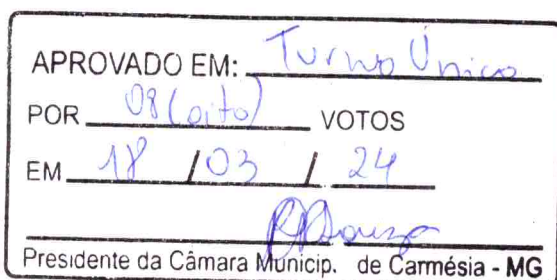 APROVADO EM: Turno Único
POR 08 (oito) VOTOS
EM 18 / 03 / 24
Presidente da Câmara Municip. de Carmésia - MG